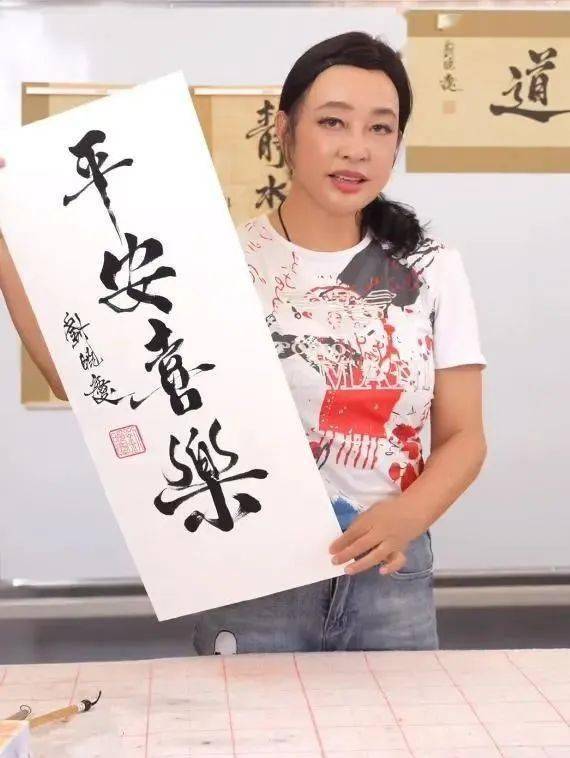 平安喜樂
劉曉慶
道
劉曉慶
靜水